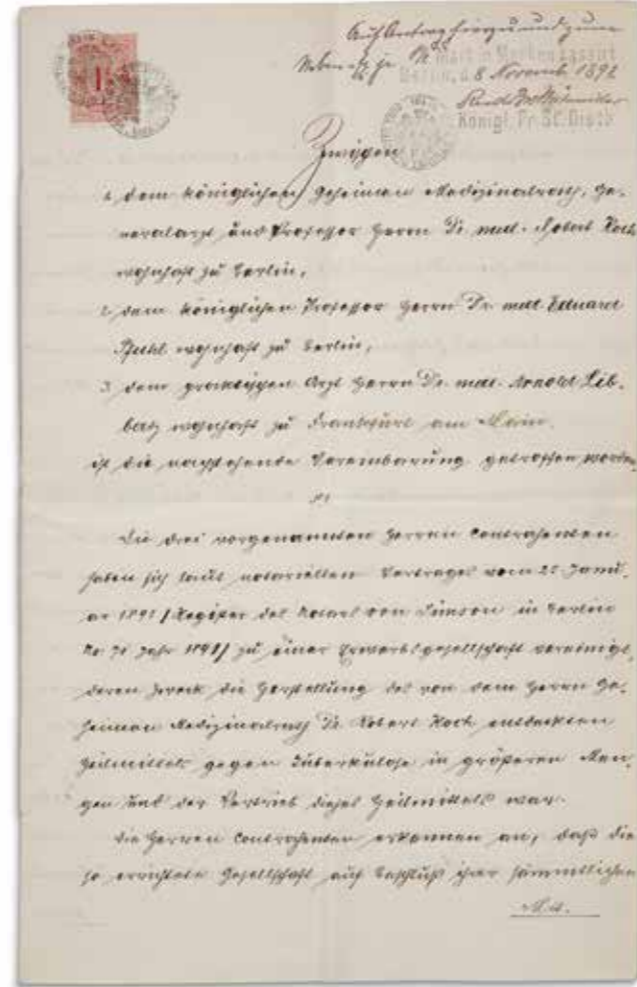 Auf Antrag hierzu und zum
Mark in Marken kassirt
Berlin, d. 8 Novemb. 1892
Königl. Pr. St. Distr.
1
Zwischen
1, dem königlichen Geheimen Medizinalrath, Ge-
neralarzt und Professor Herrn Dr. med. Robert Koch
wohnhaft zu Berlin,
2, dem königlichen Professor Herrn Dr. med. Eduard
Pfuhl wohnhaft zu Berlin,
3, dem praktischen Arzt Herrn Dr. med. Arnold Lib-
bertz wohnhaft zu Frankfurt am Main
ist die nachstehende Vereinbarung getroffen worden.
§1
Die drei vorgenannten Herren Contrahenten
haben sich laut notariellen Vertrages vom 25 Janu-
ar 1891 /Register des Notars von Simson in Berlin
No 70 Jahr 1891/ zu einer Erwerbsgesellschaft vereinigt,
deren Zweck die Herstellung des von dem Herrn Ge-
heimen Medizinalrath Dr. Robert Koch entdeckten
Heilmittels gegen Tuberkulose in größeren Men-
gen und der Vertrieb dieses Heilmittels war.
Die Herren Contrahenten erkennen an, daß die
so errichtete Gesellschaft auf Beschluß ihrer sämmtlichen
Mit-